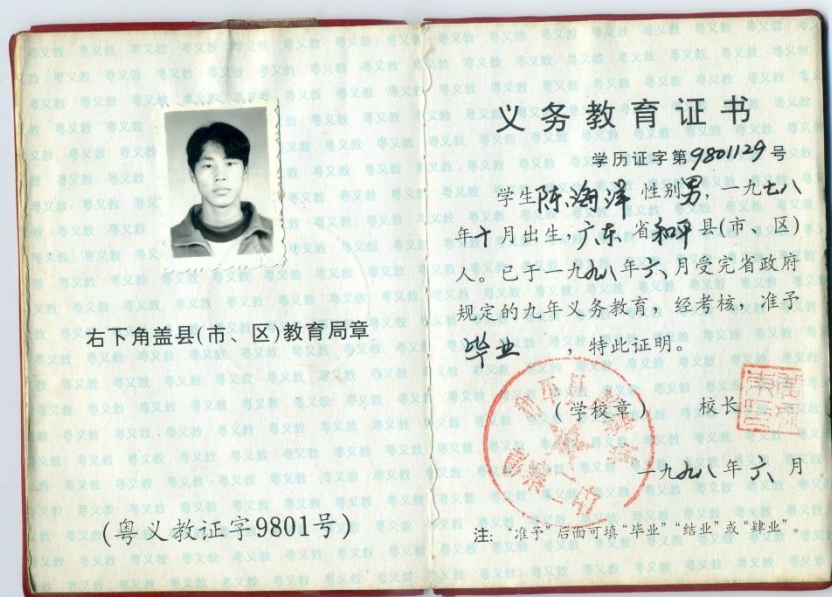 右下角盖县(市、区)教育局章
(粤义教证字9801号)
义务教育证书
学历证字第9801129号
学生陈海洋 性别男，一九七八
年十月出生，广东省和平县(市、区)
人。已于一九九八年六月受完省政府
规定的九年义务教育，经考核，准予
毕业 ，特此证明。
(学校章) 校长
一九九八年六月
注：“准予”后面可填“毕业”“结业”或“肄业”。